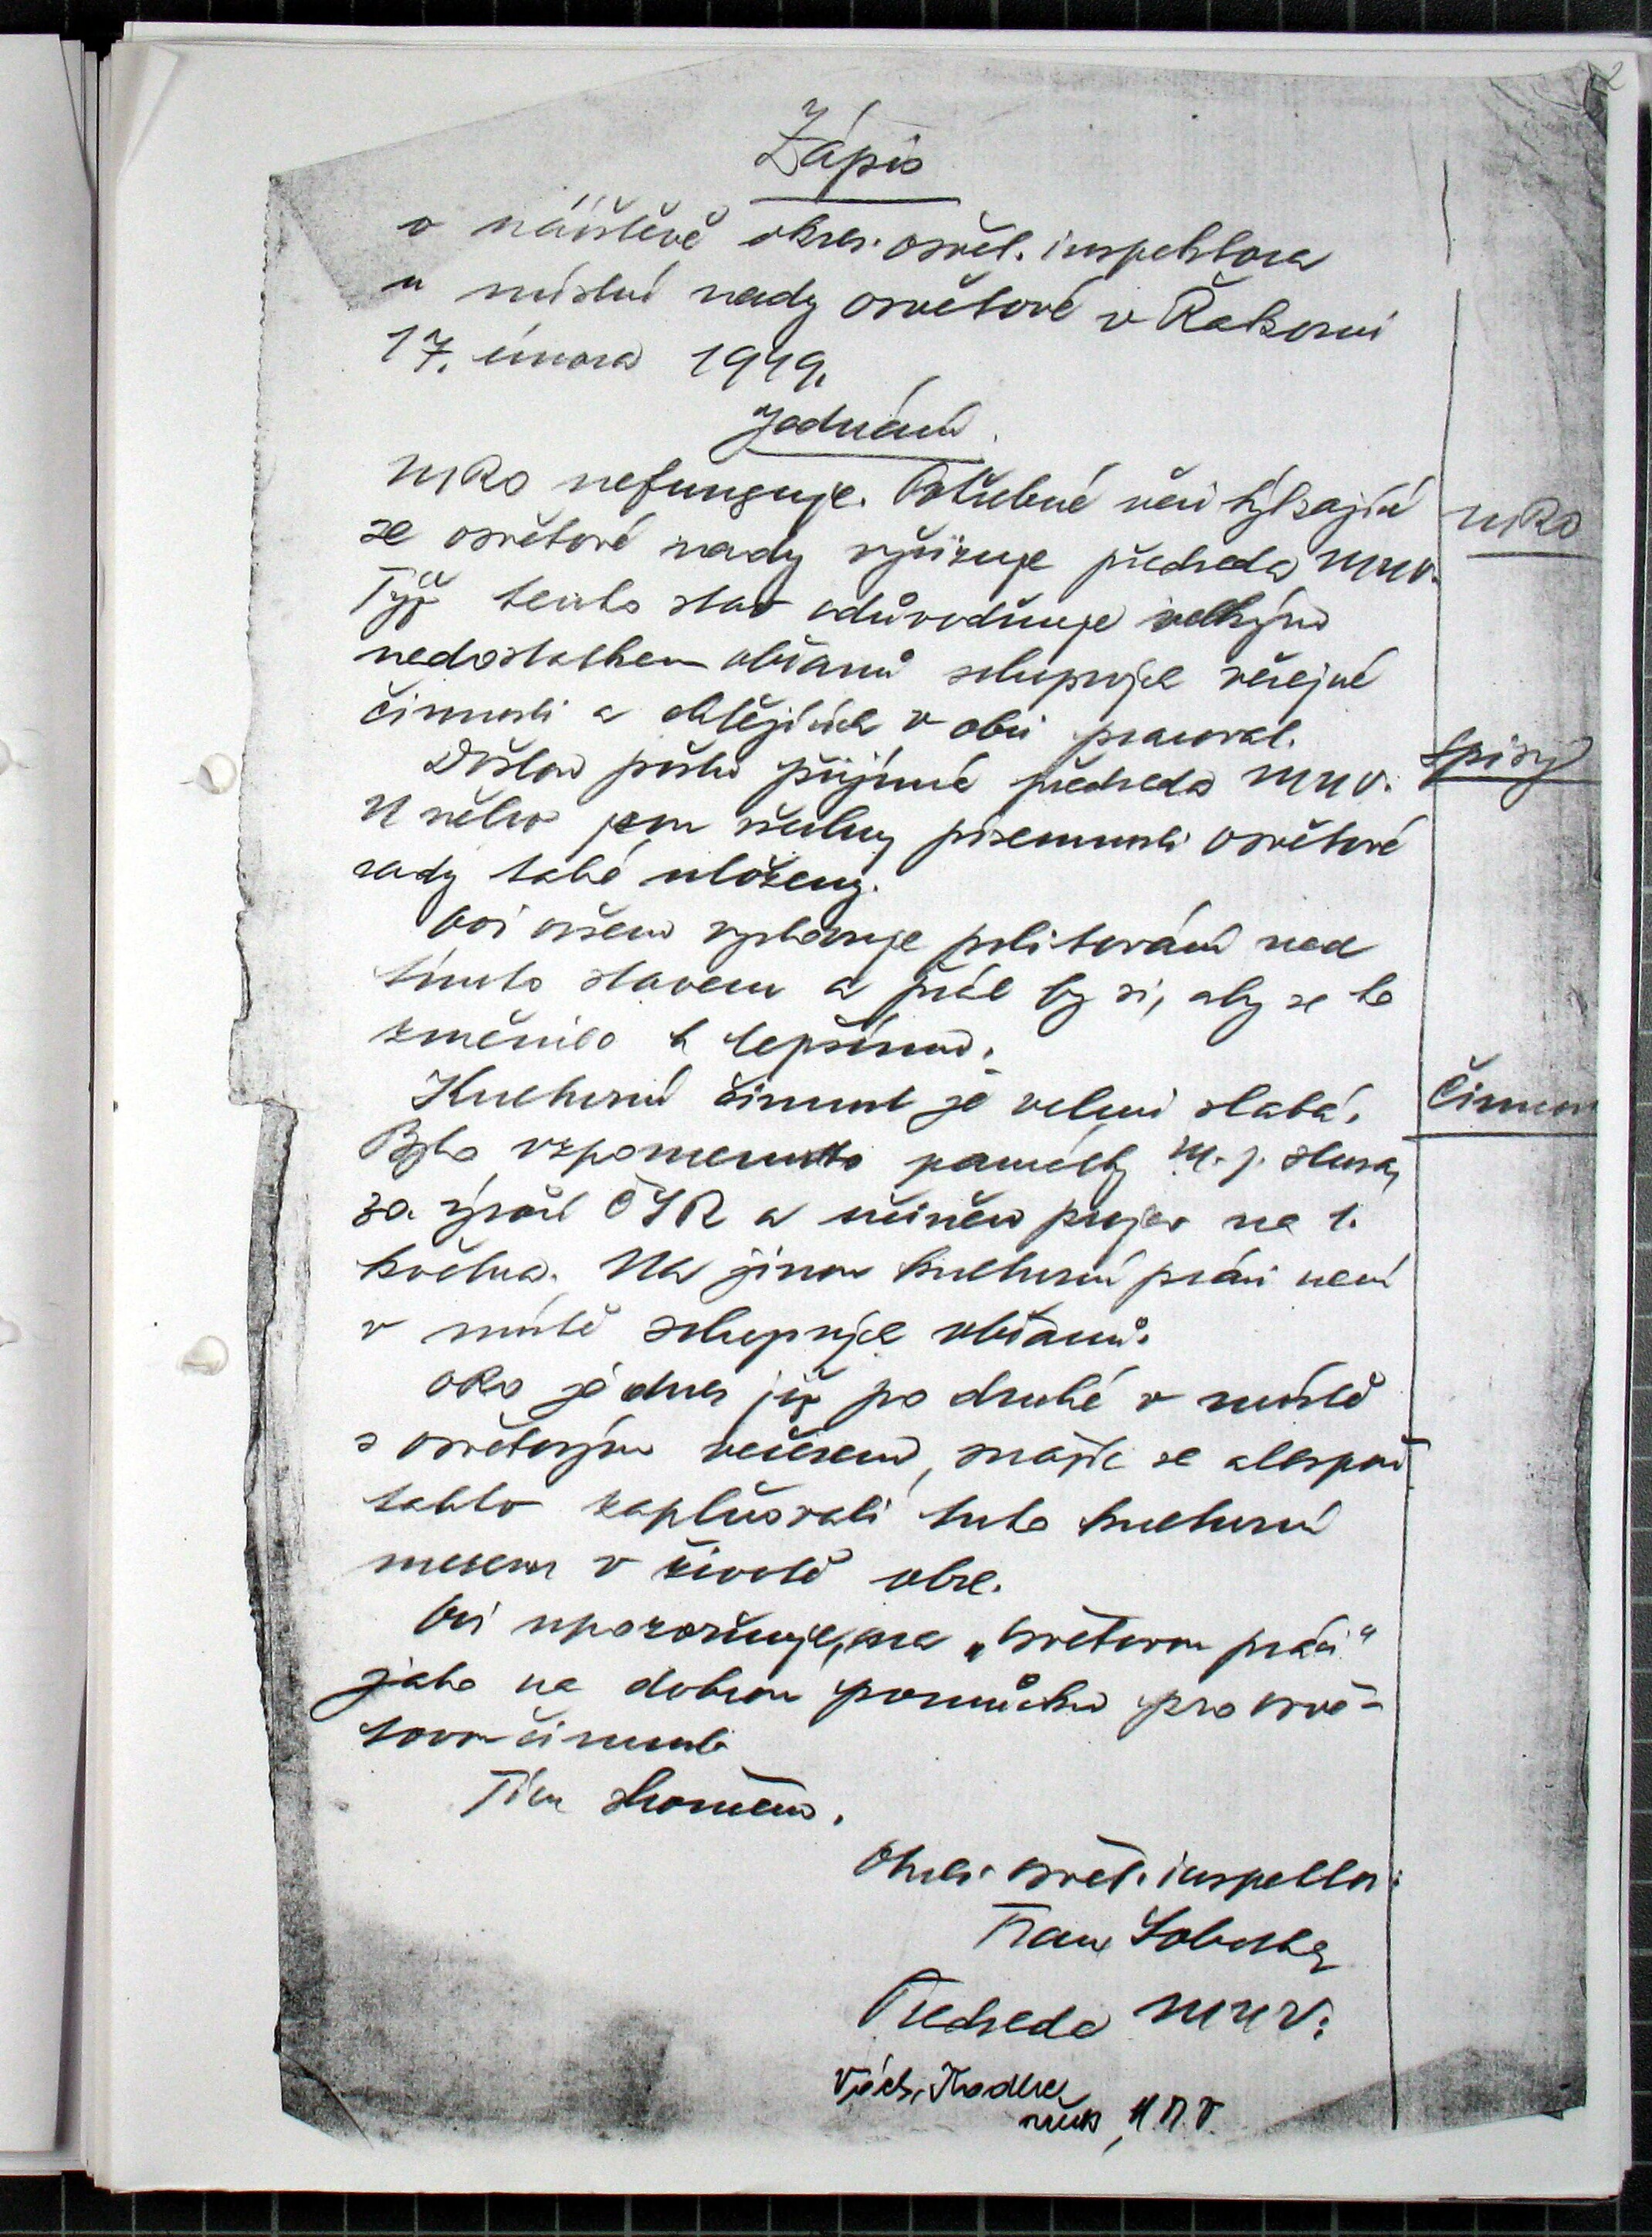 Zápis
o návštěvě okres. osvět. inspektora
u místní rady osvětové v Řakomi
17. února 1949.
Jednání.
MRO nefunguje. Potřebné věci týkající
MRO
se osvětové rady vyřizuje předseda MNV.
Týž tento stav odůvodňuje velkým
nedostatkem občanů schopných veřejné
činnosti a chtějících v obci pracovat.
Došlou poštu přijímá předseda MNV.
Spisy
U něho jsou všechny písemnosti osvětové
rady také uloženy.
OOI ovšem vyslovuje politování nad
tímto stavem a přál by si, aby se to
změnilo k lepšímu.
Kulturní činnost je velmi slabá.
Činnost
Bylo vzpomenuto památky M. J. Husa,
za výročí ČSR a učiněn projev na 1.
května. Na jinou kulturní práci není
v místě schopných občanů.
ORO je dnes již po druhé v místě
s osvětovým večerem, snažíc se alespoň
takto zaplňovati tuto kulturní
mezeru v životě obce.
OOI upozorňuje na „Osvětovou práci"
jako na dobrou pomůcku pro osvě-
tovou činnost
Tím skončeno.
Okres. osvět. inspektor:
Franc Sobotka
Předseda MNV:
MNV.